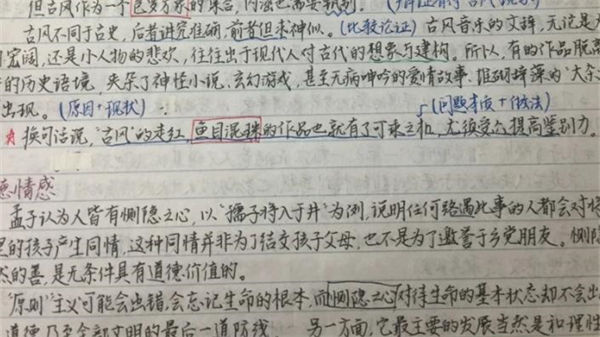 但古风作为一个包罗万象的
古风不同于古史,后者讲究准确,前者但求神似。(比较论证)古风音乐的文辞,无论是
宏阔,还是小人物的悲欢,往往出于现代人对古代的想象与建构。所以,有的作品脱离
的历史语境,夹杂了神怪小说、玄幻游戏,甚至无病呻吟的爱情故事、堆砌辞藻的“大杂
出现。(原因+现状)
(问题本质+做法)
换句话说,“古风”的走红,鱼目混珠的作品也就有了可乘之机,尤须受众提高鉴别力。
情感
孟子认为人皆有恻隐之心,以“孺子将入于井”为例,说明任何路遇此事的人都会对将
的孩子产生同情,这种同情并非为了结交孩子父母,也不是为了邀誉于乡党朋友。恻隐
然的善,是无条件具有道德价值的。
“原则”主义可能会出错,会忘记生命的根本,而恻隐之心对待生命的基本状态却不会出
道德乃至全部文明的最后一道防线。 另一方面,它最主要的发展当然是和理性